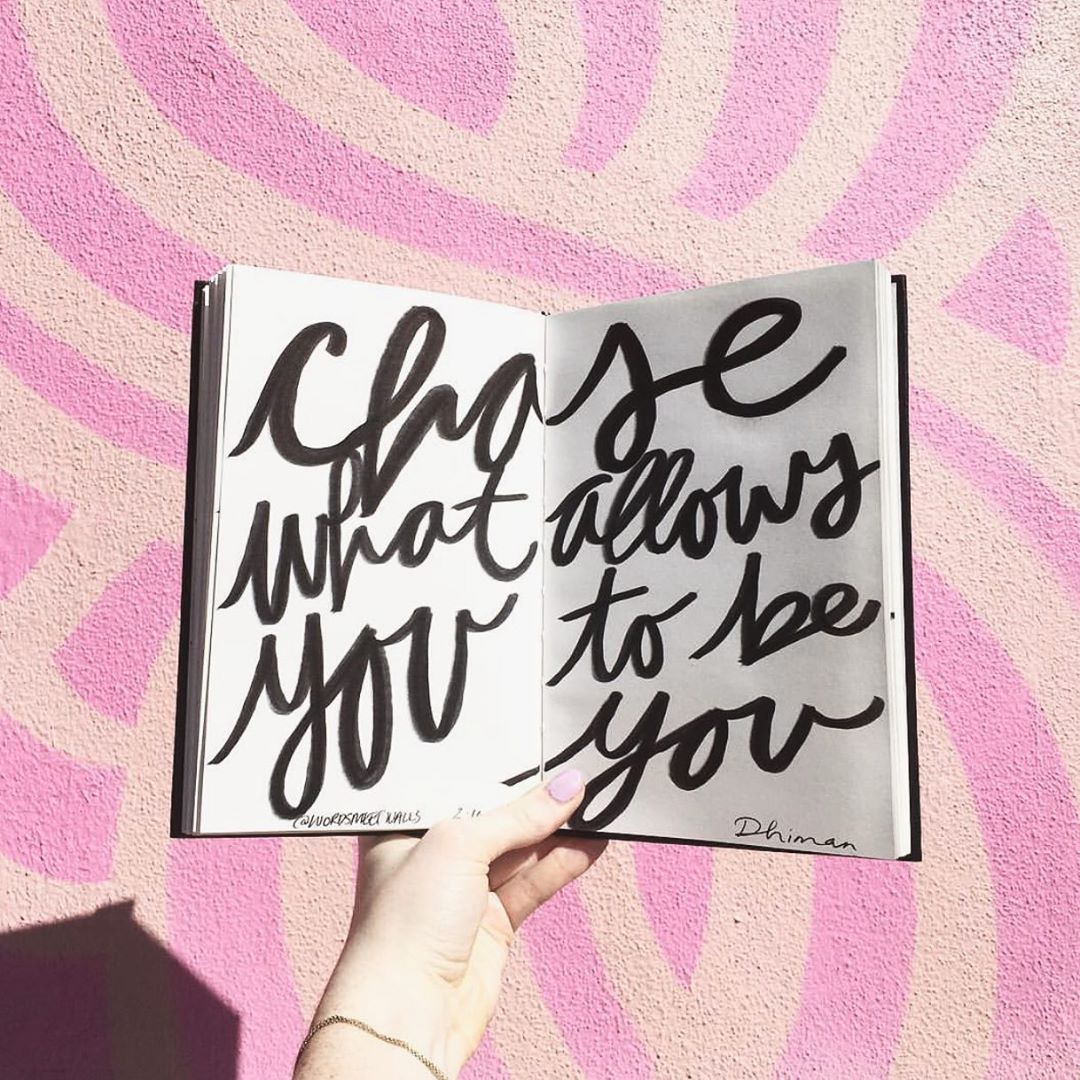 Chase
what allows
you to be
you
@WORDSMEETWALLS
Dhiman